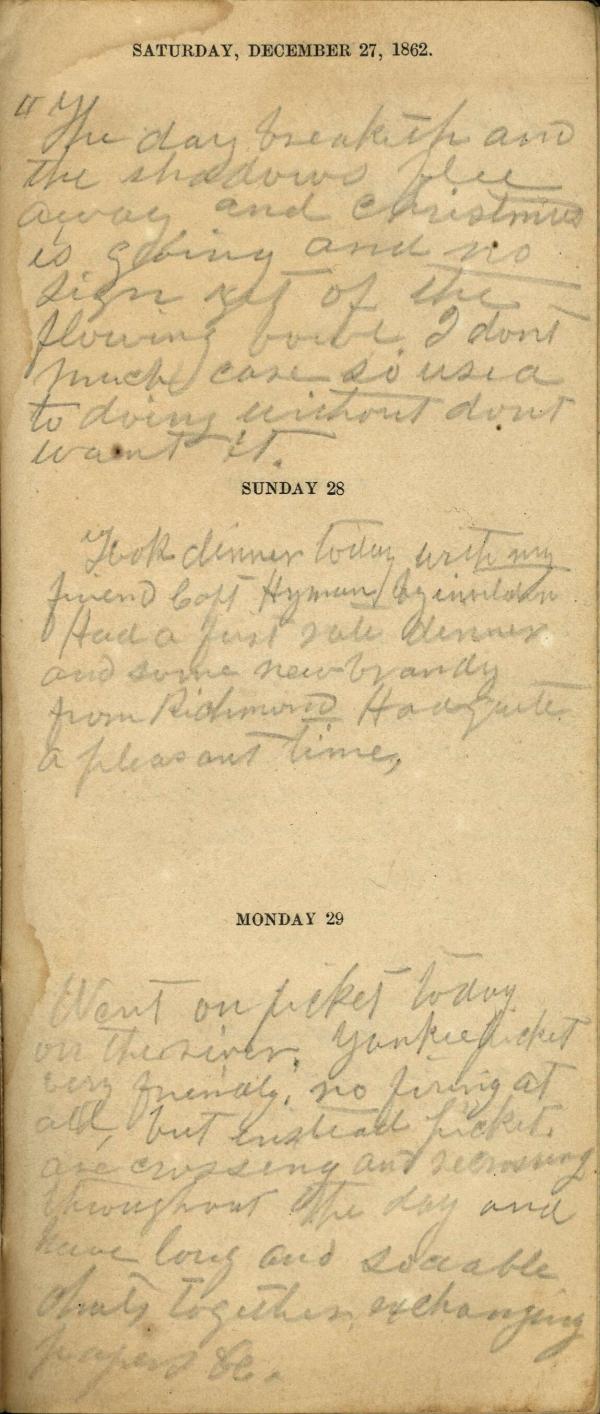 SATURDAY, DECEMBER 27, 1862.
"The day breaketh and
the shadows flee
away and christmas
is going and no
sign yet of the
flowing bowl. I dont
much care so used
to doing without dont
want it.
SUNDAY 28
Took dinner today with my
friend Capt Hyman by invitation
Had a first rate dinner
and some new brandy
from Richmond Had quite
a pleasant time,
MONDAY 29
Went on picket today
on the river. Yankee picket
very friendly, no firing at
all, but instead pickets
are crossing and recrossing
throughout the day and
have long and sociable
chats together, exchanging
papers &c.